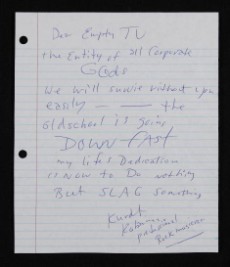 Dear Empty TV
the Entity of all Corporate
Gods
We will survive without you
easily — — the
oldschool is going
DOWN FAST
my lifes Dedication
is now To Do nothing
But SLAG something
Kurdt
professional
Rock musician